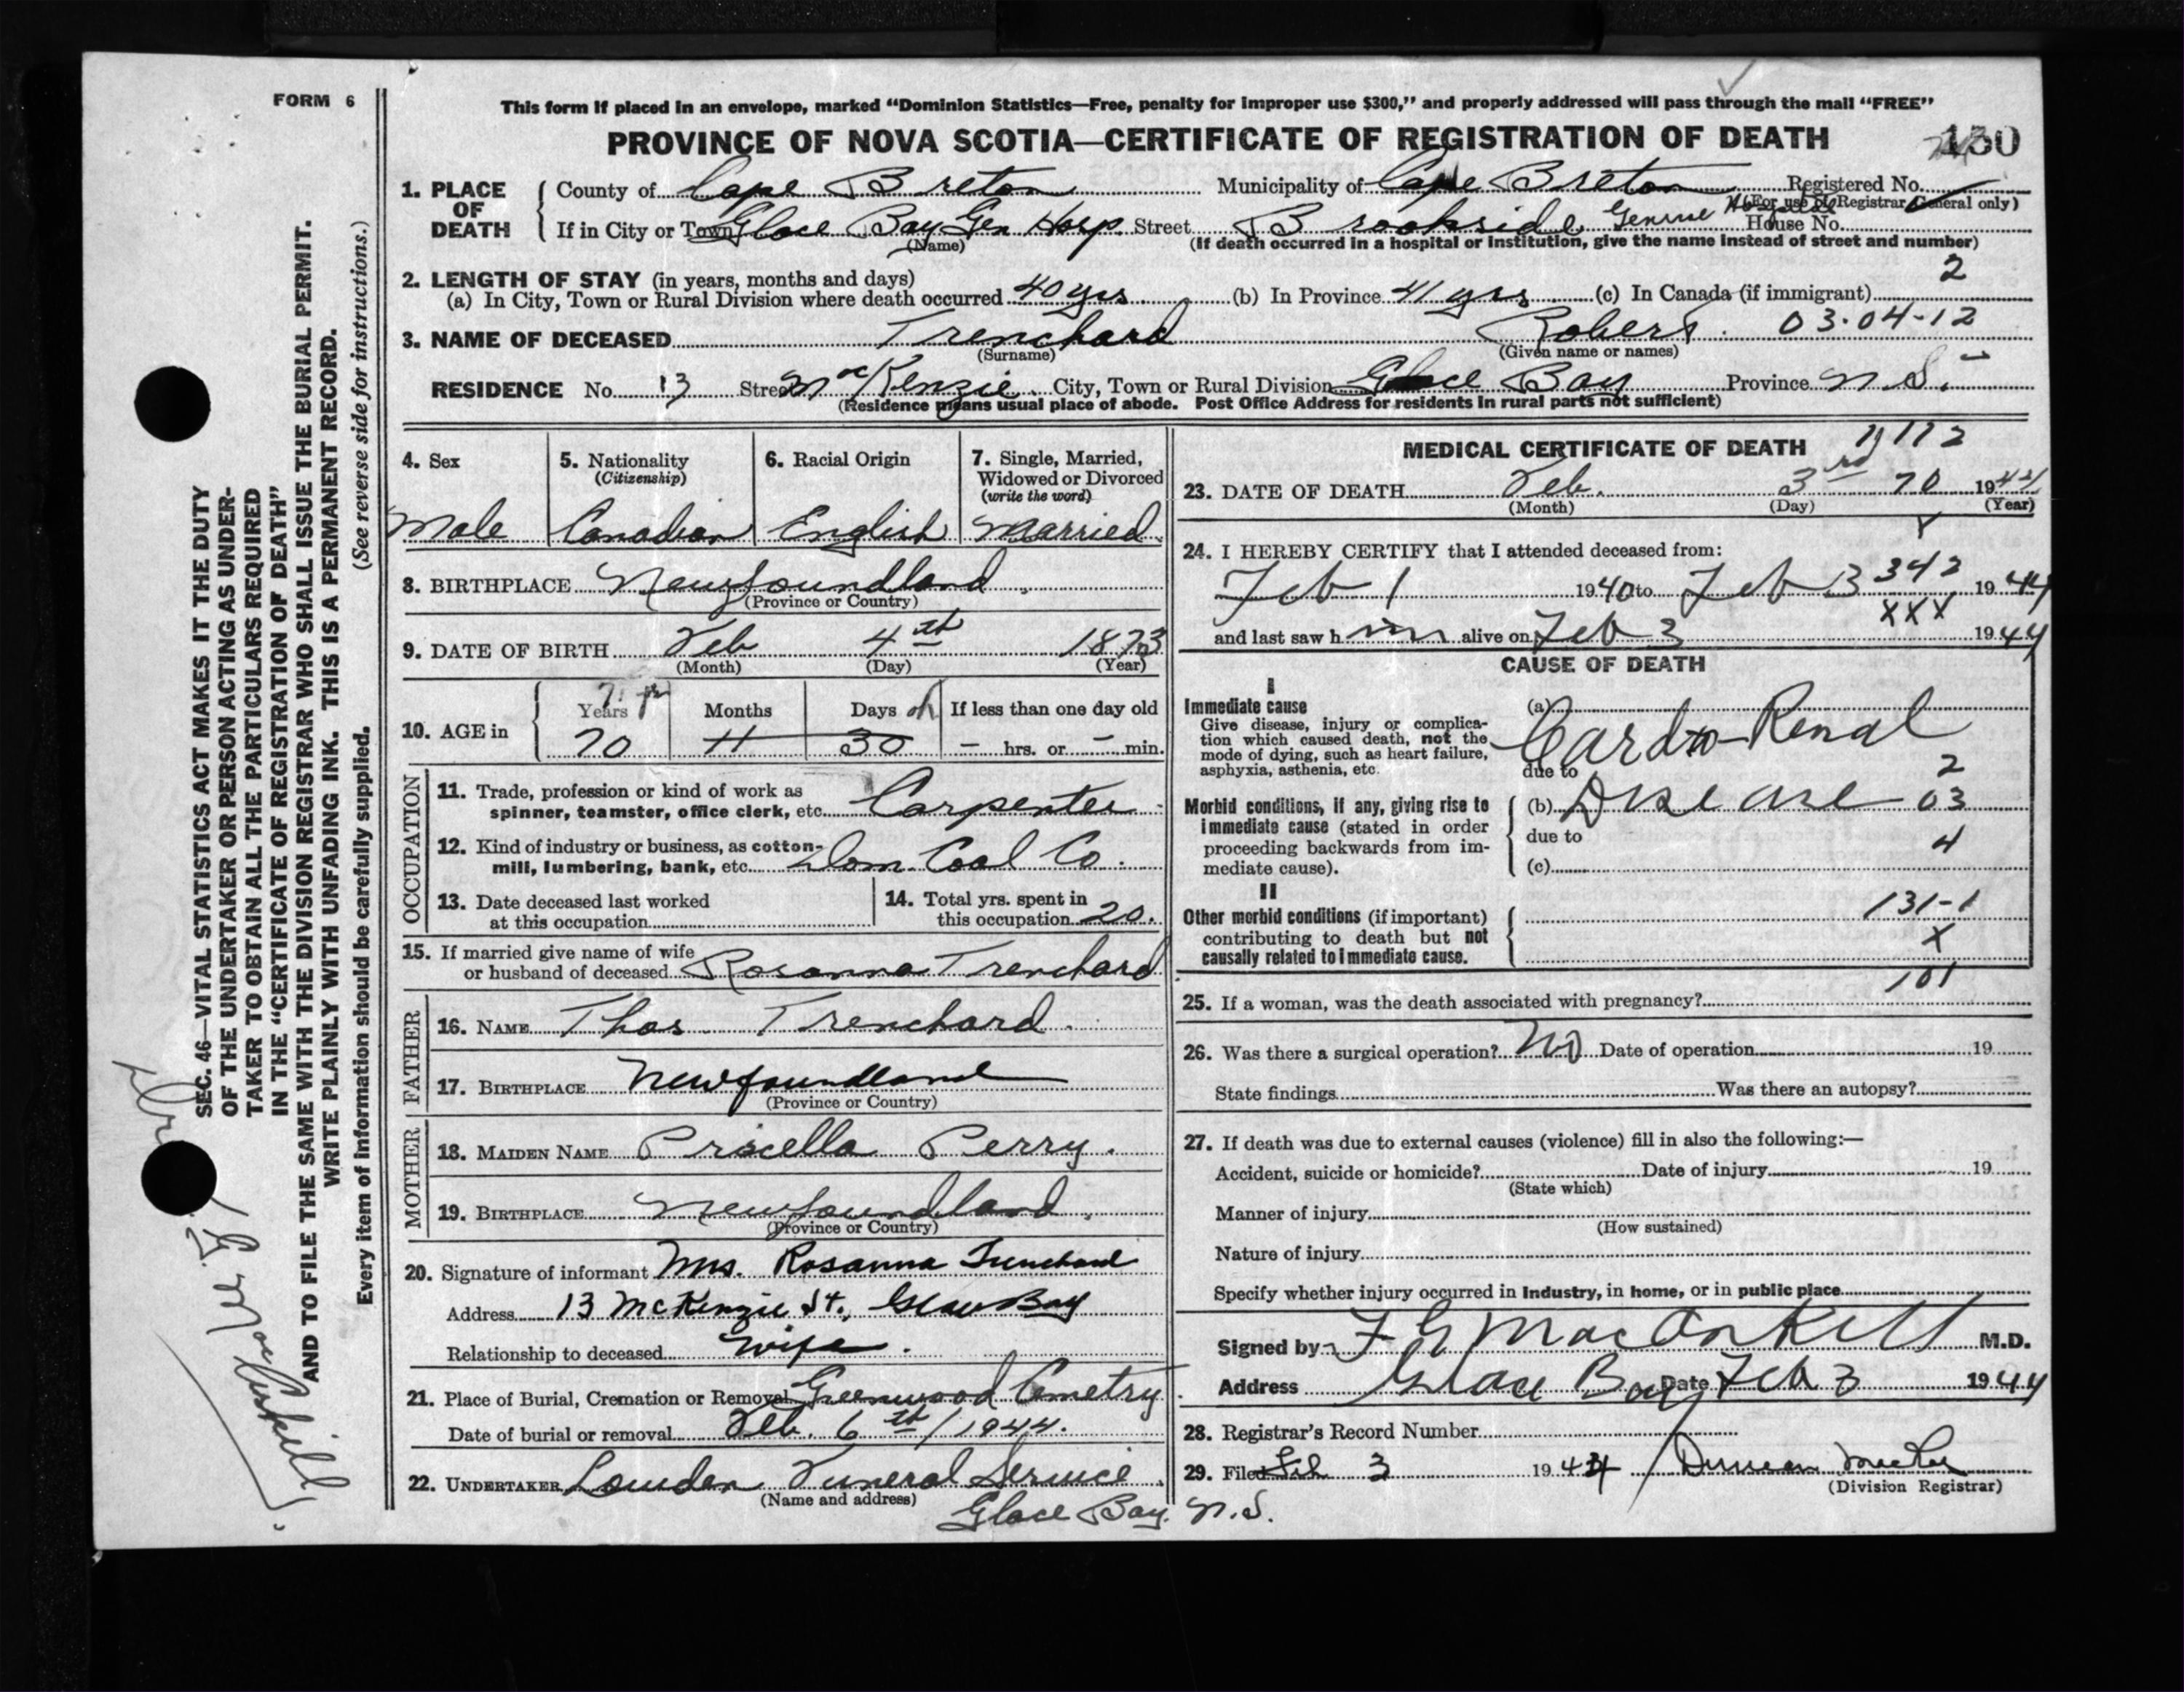 FORM 6
This form if placed in an envelope, marked "Dominion Statistics—Free, penalty for improper use $300," and properly addressed will pass through the mail "FREE"
PROVINCE OF NOVA SCOTIA—CERTIFICATE OF REGISTRATION OF DEATH
130
SEC. 46—VITAL STATISTICS ACT MAKES IT THE DUTY
OF THE UNDERTAKER OR PERSON ACTING AS UNDER-
TAKER TO OBTAIN ALL THE PARTICULARS REQUIRED
IN THE "CERTIFICATE OF REGISTRATION OF DEATH"
AND TO FILE THE SAME WITH THE DIVISION REGISTRAR WHO SHALL ISSUE THE BURIAL PERMIT.
WRITE PLAINLY WITH UNFADING INK. THIS IS A PERMANENT RECORD.
Every item of information should be carefully supplied. (See reverse side for instructions.)
1. PLACE OF DEATH
County of Cape Breton Municipality of Cape Breton Registered No.
(For use of Registrar General only)
If in City or Town Glace Bay Gen Hosp. Street Brookside General Hospital House No.
(Name) (If death occurred in a hospital or institution, give the name instead of street and number)
2. LENGTH OF STAY (in years, months and days) 2
(a) In City, Town or Rural Division where death occurred 40 yrs (b) In Province 41 yrs (c) In Canada (if immigrant)
3. NAME OF DECEASED Trenchard Robert. 03-04-12
(Surname) (Given name or names)
RESIDENCE No. 13 Street MacKenzie City, Town or Rural Division Glace Bay Province N.S.
(Residence means usual place of abode. Post Office Address for residents in rural parts not sufficient)
4. Sex
Male
5. Nationality
(Citizenship)
Canadian
6. Racial Origin
English
7. Single, Married,
Widowed or Divorced
(write the word)
Married
8. BIRTHPLACE Newfoundland
(Province or Country)
9. DATE OF BIRTH Feb 4th 1873
(Month) (Day) (Year)
10. AGE in
71 yr
Years Months Days If less than one day old
70 11 30 – hrs. or – min.
OCCUPATION
11. Trade, profession or kind of work as
spinner, teamster, office clerk, etc. Carpenter
12. Kind of industry or business, as cotton-
mill, lumbering, bank, etc. Dom Coal Co.
13. Date deceased last worked
at this occupation
14. Total yrs. spent in
this occupation 20.
15. If married give name of wife
or husband of deceased Rosanna Trenchard
FATHER
16. NAME Thos. Trenchard.
17. BIRTHPLACE Newfoundland
(Province or Country)
MOTHER
18. MAIDEN NAME Priscella Perry.
19. BIRTHPLACE Newfoundland.
(Province or Country)
20. Signature of informant Mrs. Rosanna Trenchard
Address 13 McKenzie St, Glace Bay
Relationship to deceased wife.
21. Place of Burial, Cremation or Removal Greenwood Cemetry
Date of burial or removal Feb. 6th/1944.
22. UNDERTAKER Lowden Funeral Service
(Name and address)
Glace Bay. N.S.
MEDICAL CERTIFICATE OF DEATH
23. DATE OF DEATH Feb. 3rd 70 1944
(Month) (Day) (Year)
24. I HEREBY CERTIFY that I attended deceased from:
Feb 1 1940 to Feb 3 342 1944
XXX
and last saw him alive on Feb 3 1944
CAUSE OF DEATH
I
Immediate cause
Give disease, injury or complica-
tion which caused death, not the
mode of dying, such as heart failure,
asphyxia, asthenia, etc.
(a) Cardio-Renal
due to
2
Morbid conditions, if any, giving rise to
immediate cause (stated in order
proceeding backwards from im-
mediate cause).
(b) Disease 03
due to
4
(c)
II
Other morbid conditions (if important)
contributing to death but not
causally related to immediate cause.
131-1
X
101
25. If a woman, was the death associated with pregnancy?
26. Was there a surgical operation? No Date of operation 19
State findings Was there an autopsy?
27. If death was due to external causes (violence) fill in also the following:—
Accident, suicide or homicide? Date of injury 19
(State which)
Manner of injury
(How sustained)
Nature of injury
Specify whether injury occurred in Industry, in home, or in public place
Signed by F G MacAskill M.D.
Address Glace Bay Date Feb 3 1944
28. Registrar's Record Number
29. Filed Feb 3 1944 Duncan
(Division Registrar)